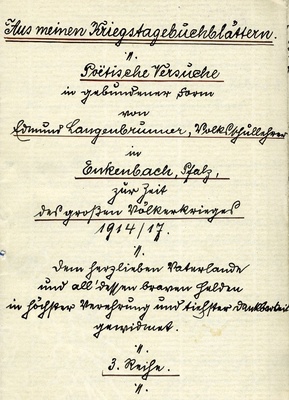 Aus meinen Kriegstagebuchblättern.
.//.
Poëtische Versuche
in gebundener Form
von
Edmund Langenbrunner, Volksschullehrer
in
Enkenbach, Pfalz,
zur Zeit
des großen Völkerkrieges
1914/17.
.//.
Dem herzlieben Vaterlande
und all' dessen braven Helden
in höchster Verehrung und tiefster Dankbarkeit
gewidmet.
.//.
3. Reihe.
.//.